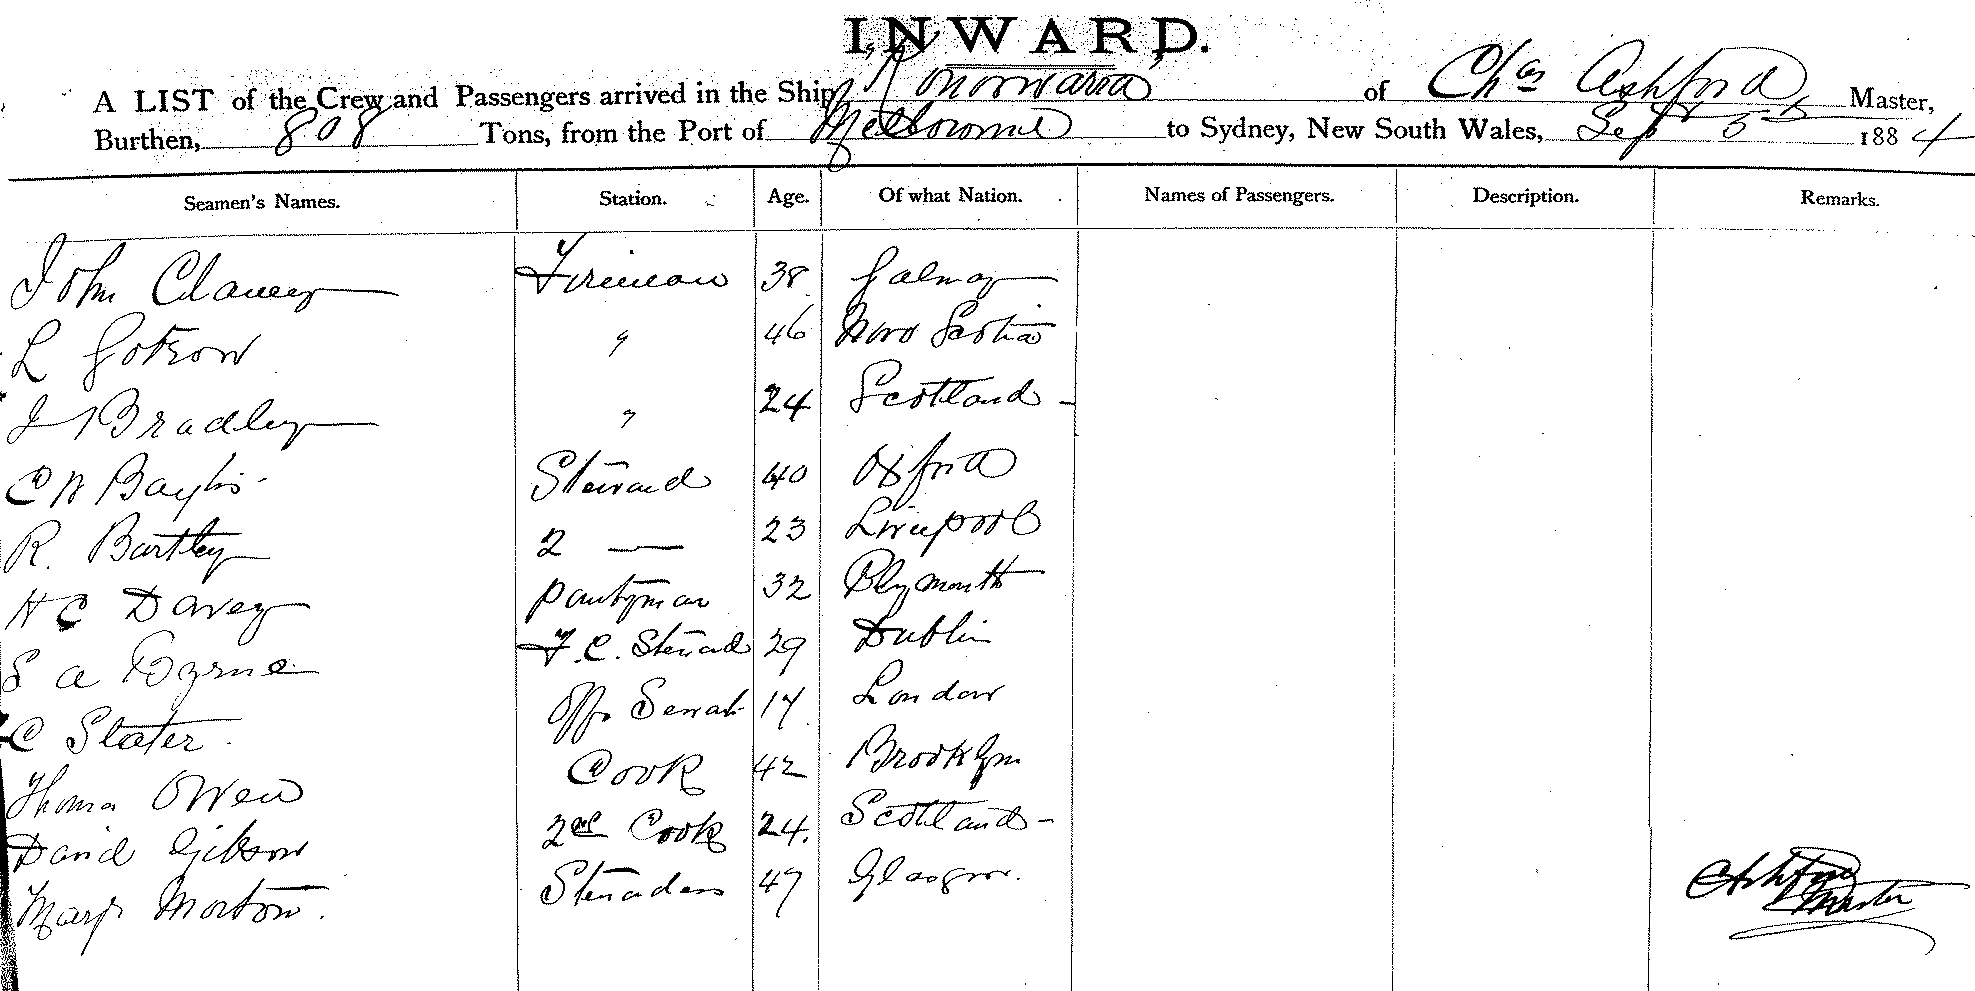 INWARD.
A LIST of the Crew and Passengers arrived in the Ship Konoowarra of Chas Ashford Master,
Burthen, 808 Tons, from the Port of Melbourne to Sydney, New South Wales, Sept 5th 1884
Seamen's Names. Station. Age. Of what Nation. Names of Passengers. Description. Remarks.
John Clancy Fireman 38 Galway
L " 46 Nova Scotia
J Bradley " 24 Scotland -
C W Baylis Steward 40 Oxford
R. Bartley 2 — 23 Liverpool
H C Davey pantryman 32 Plymouth
S a Byrne F. C. Steward 29 Dublin
C Slater. 17 London
Thomas Owen Cook 42 Brooklyn
David Gibson 2nd Cook 24. Scotland -
Mary Morton. Stewardess 47 Glasgow.
C Ashford
Master